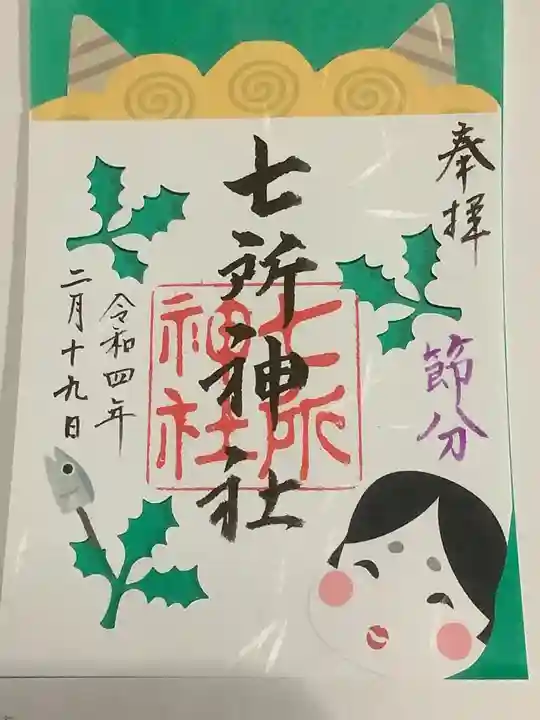 奉拝
節分
七所神社
七所
神社
令和四年
二月十九日